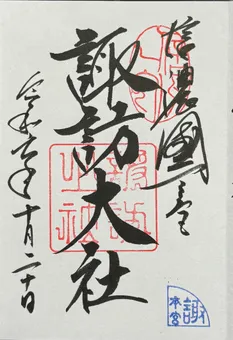 信濃國一之宮
諏訪大社
諏訪大社
令和六年十月二十日
諏
本宮